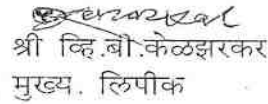 श्री व्हि.बी.केळझरकर
मुख्य. लिपीक